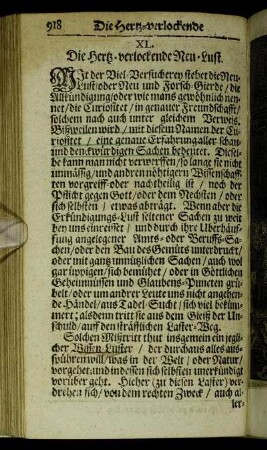 918 Die Hertz-verlockende
XL.
Die Hertz-verlockende Neu-Lust.
MIt der Viel-Versucherey stehet die Neu-
Lust/oder Neu- und Forsch-Gierde / die
Allkündigung/oder wie mans gewöhnlich nen-
net/die Curiositet / in genauer Freundschafft/
solchem nach auch unter gleichem Verweis.
Bißweilen wird / mit diesem Namen der Cu-
riositet / eine genaue Erfahrung aller schau-
und denckwürdigen Sachen bedeutet. Diesel-
be kan man nicht verwerffen/so lange sie nicht
unmässig/und andren nöhtigern Wissenschaff-
ten vorgreiff- oder nachtheilig ist / noch der
Pflicht gegen Gott / oder dem Nechsten / oder
sich selbsten / etwas abträgt. Wenn aber die
Erkündigungs-Lust seltener Sachen zu weit
bey uns einreisset / und durch ihre Uberhäuf-
fung angelegener Amts- oder Beruffs-Sa-
chen/oder den Bau des Gemüts unterdruckt/
oder mit gantz unnützlichen Sachen / auch wol
gar üppigen/sich bemühet / oder in Göttlichen
Geheimnussen und Glaubens-Puncten grü-
belt/oder um andrer Leute uns nicht angehen-
de Händel/aus Tadel-Sucht / sich viel bekün-
mert; alsdenn tritt sie aus dem Gleiß der Un-
schuld/auff den sträfflichen Laster-Weg.
Solchen Mißtritt thut insgemein ein jeg-
licher Wissen-Lüstler / der durchaus alles aus-
spühren will/was in der Welt / oder Natur/
vorgehet: und indessen sich selbsten unerkündigt
vorüber geht. Hieher (zu diesen Laster) ver-
drehen sich / von dem rechten Zweck / auch al-
ler-